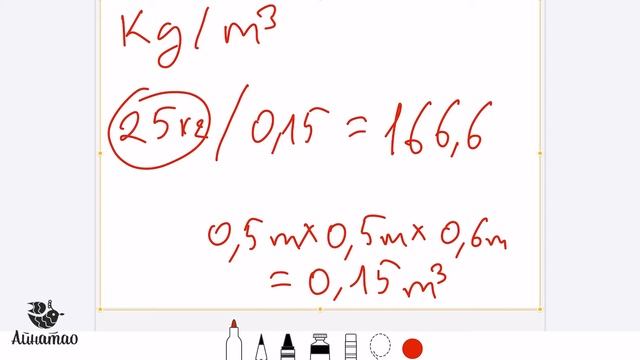 Kg/m³
25кг/0,15 = 166,6
0,5m×0,5m×0,6m
= 0,15m³
Айнатао